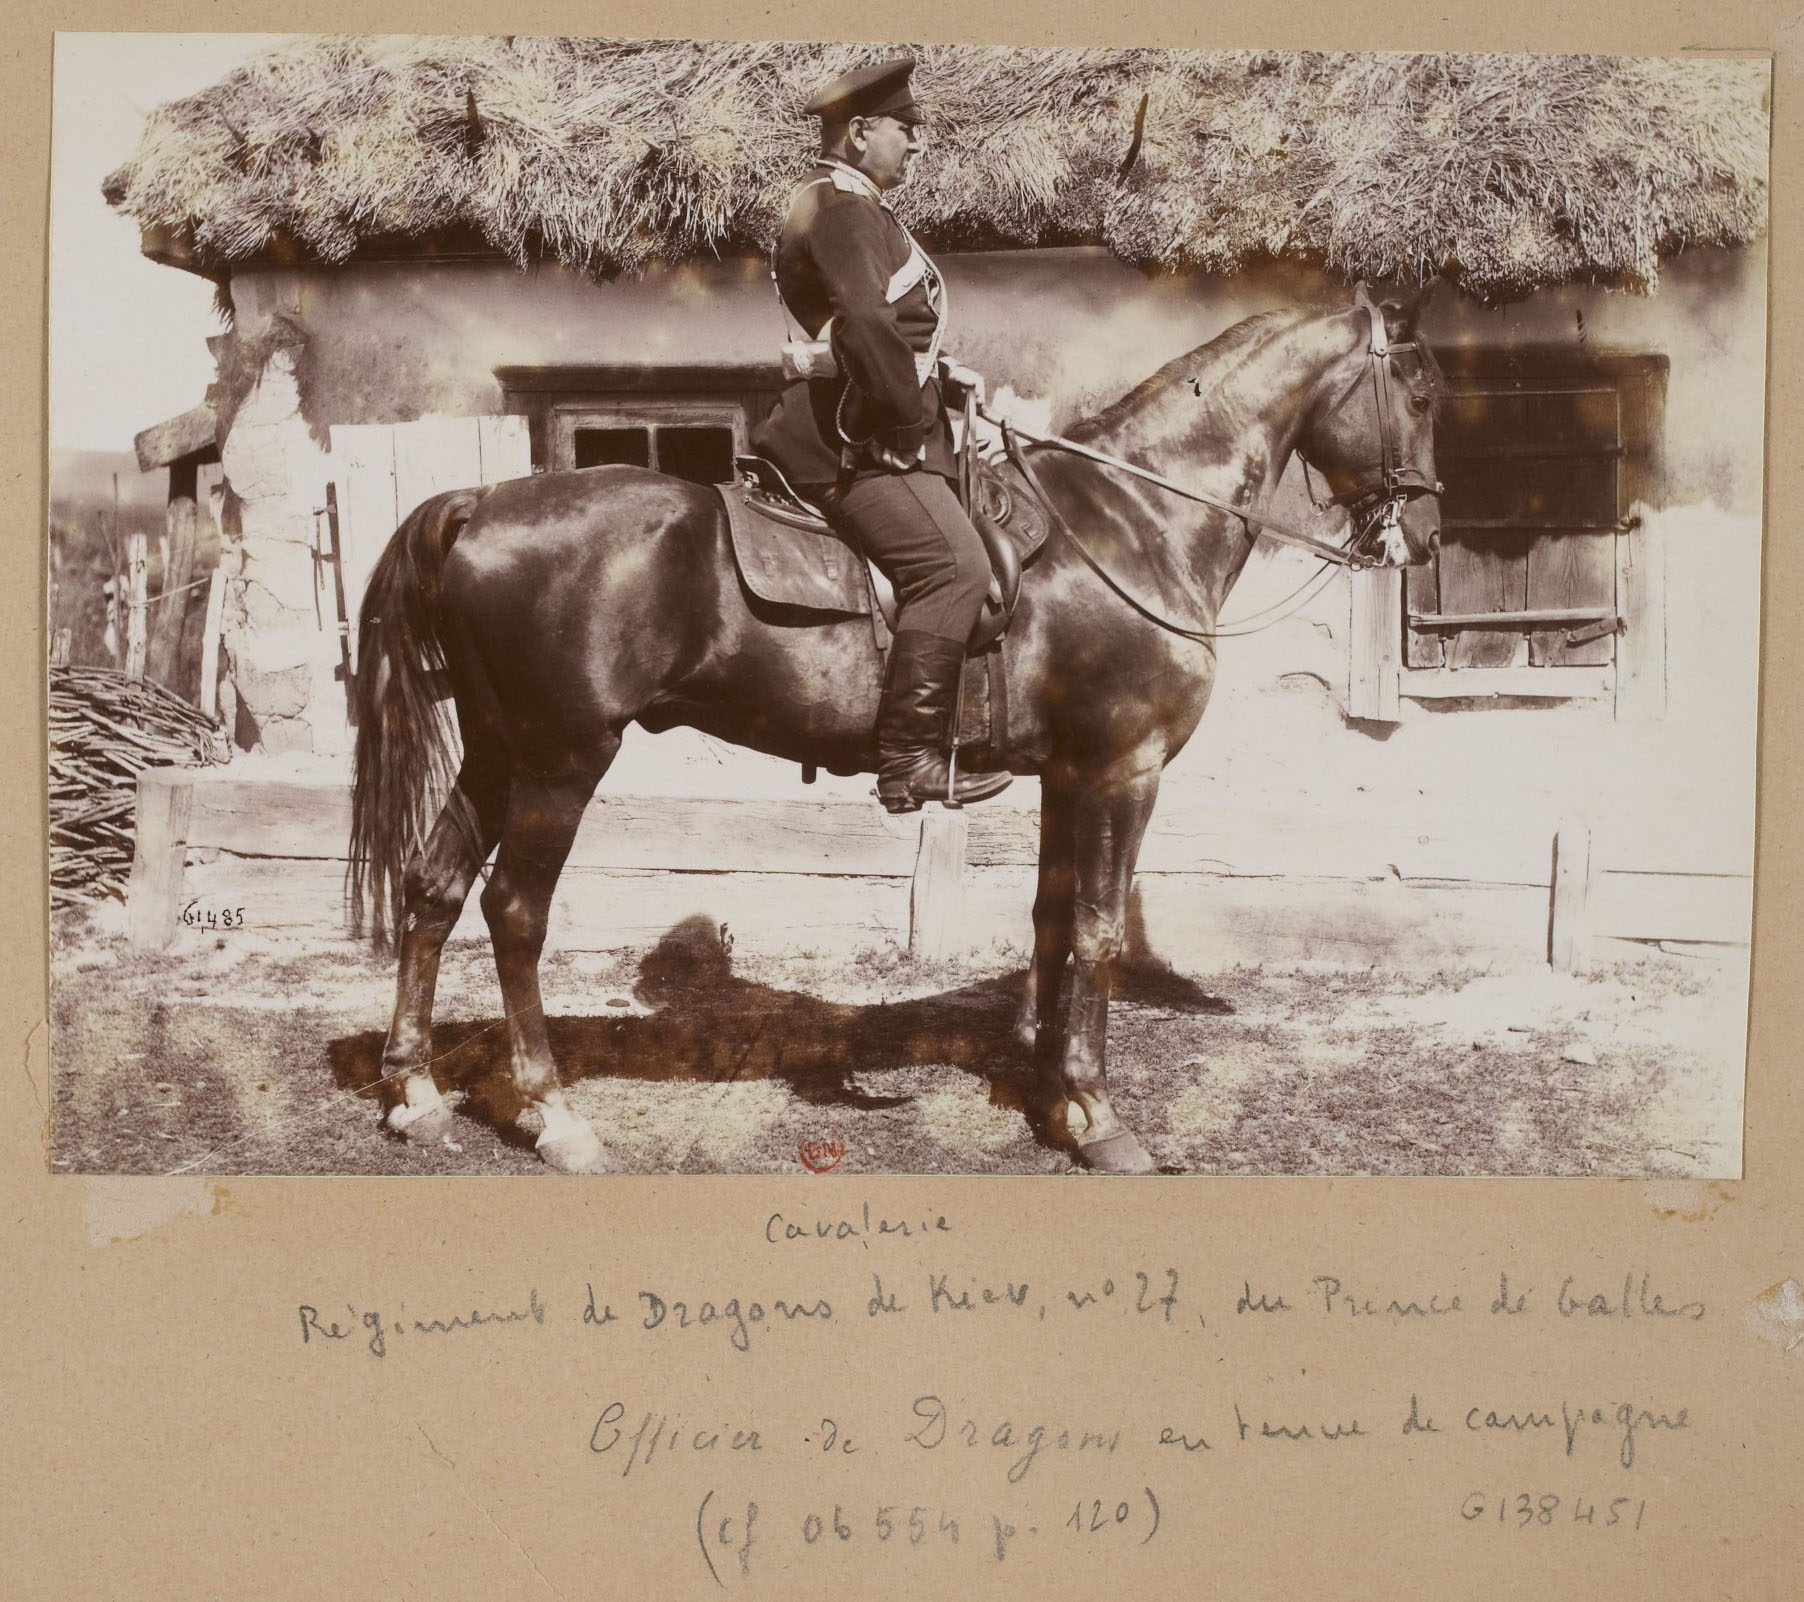 G1,485
BN
Cavalerie
Régiment de Dragons de Kiev, nº 27, du Prince de Galles
Officier de Dragons en tenue de campagne
(cf Ob 554 p. 120)
G138451